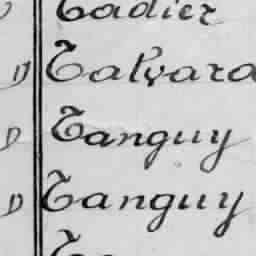 Tadier
D Talvara
D Tanguy
D Tanguy